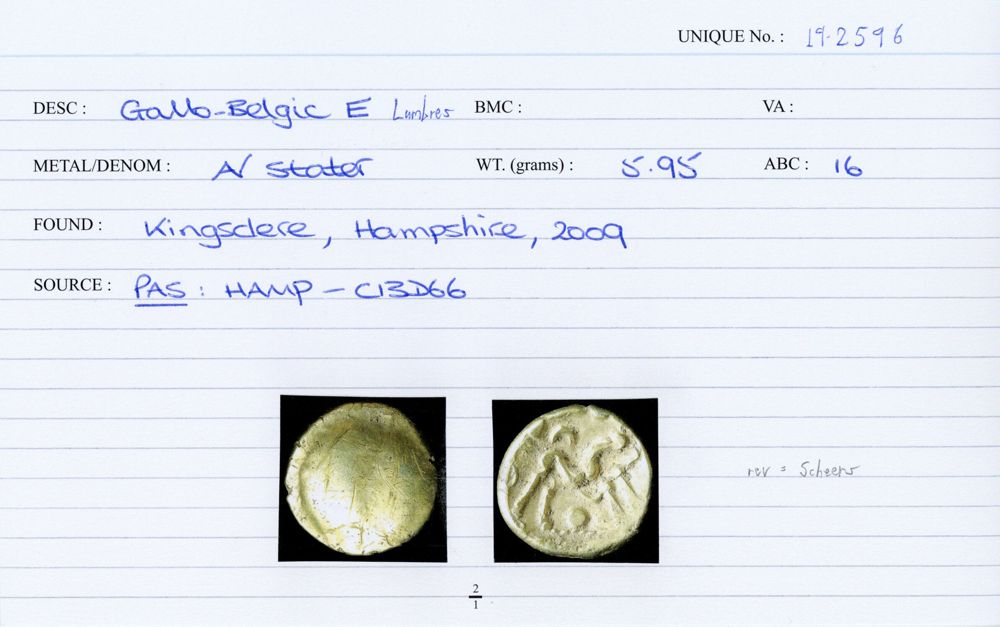 UNIQUE No. : 19-2596
DESC : Gallo-Belgic E Lumbres BMC : VA :
METAL/DENOM : AV Stater WT. (grams) : 5.95 ABC : 16
FOUND : Kingsclere, Hampshire, 2009
SOURCE : PAS : HAMP - C13D66
rev = Scheers
2
1